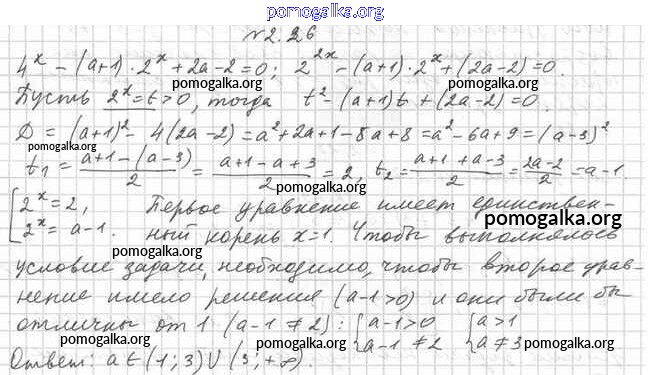 pomogalka.org
№2.26
4^x − (a+1)·2^x + 2a−2=0; 2^{2x} − (a+1)·2^x + (2a−2)=0.
pomogalka.org pomogalka.org
Пусть 2^x = t > 0, тогда t² − (a+1)t + (2a−2) = 0.
D = (a+1)² − 4(2a−2) = a²+2a+1−8a+8 = a²−6a+9 = (a−3)²
pomogalka.org pomogalka.org
t₁ = (a+1−(a−3))/2 = (a+1−a+3)/2 = 2, t₂ = (a+1+a−3)/2 = (2a−2)/2 = a−1.
pomogalka.org
[2^x = 2, Первое уравнение имеет единствен-
pomogalka.org
2^x = a−1. ный корень x=1. Чтобы выполнялось
pomogalka.org
условие задачи, необходимо, чтобы второе урав-
нение имело решения (a−1>0) и они были бы
отличны от 1 (a−1≠2): {a−1>0 {a>1
pomogalka.org a−1≠2 pomogalka.org a≠3 pomogalka.org
Ответ: a∈(1;3)∪(3;+∞).